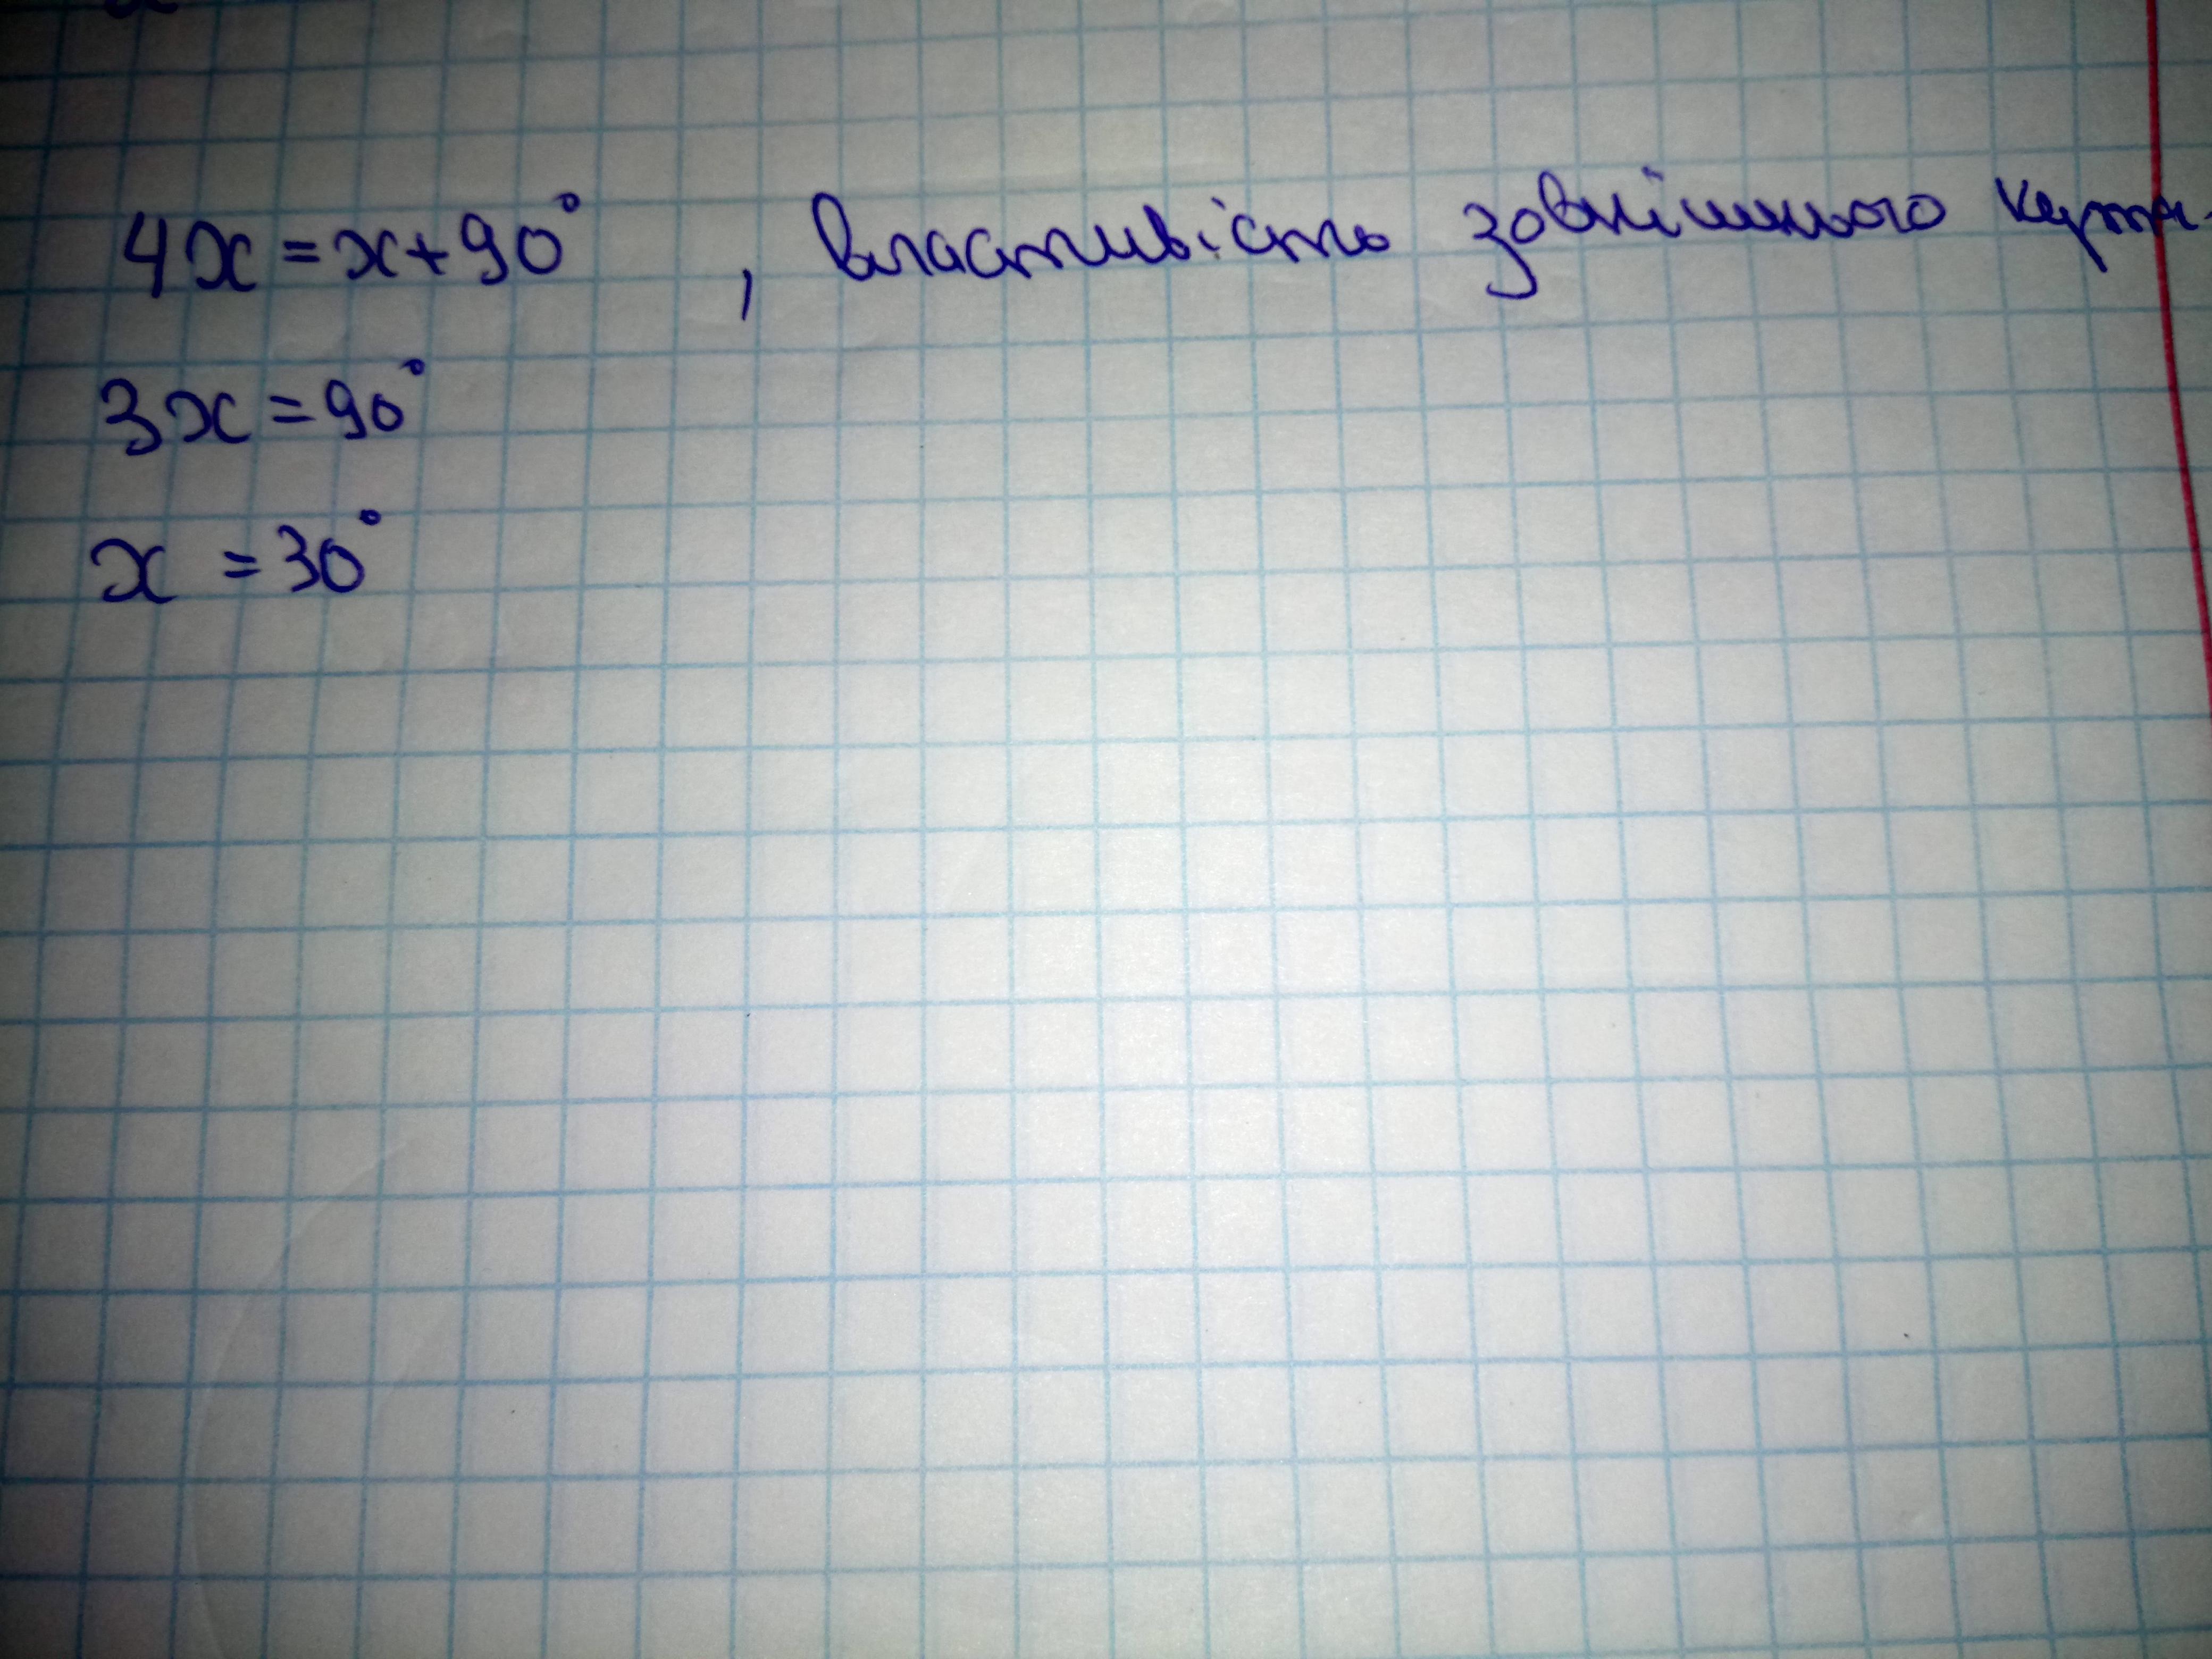 4x = x + 90° , властивість зовнішнього кута.
3x = 90°
x = 30°